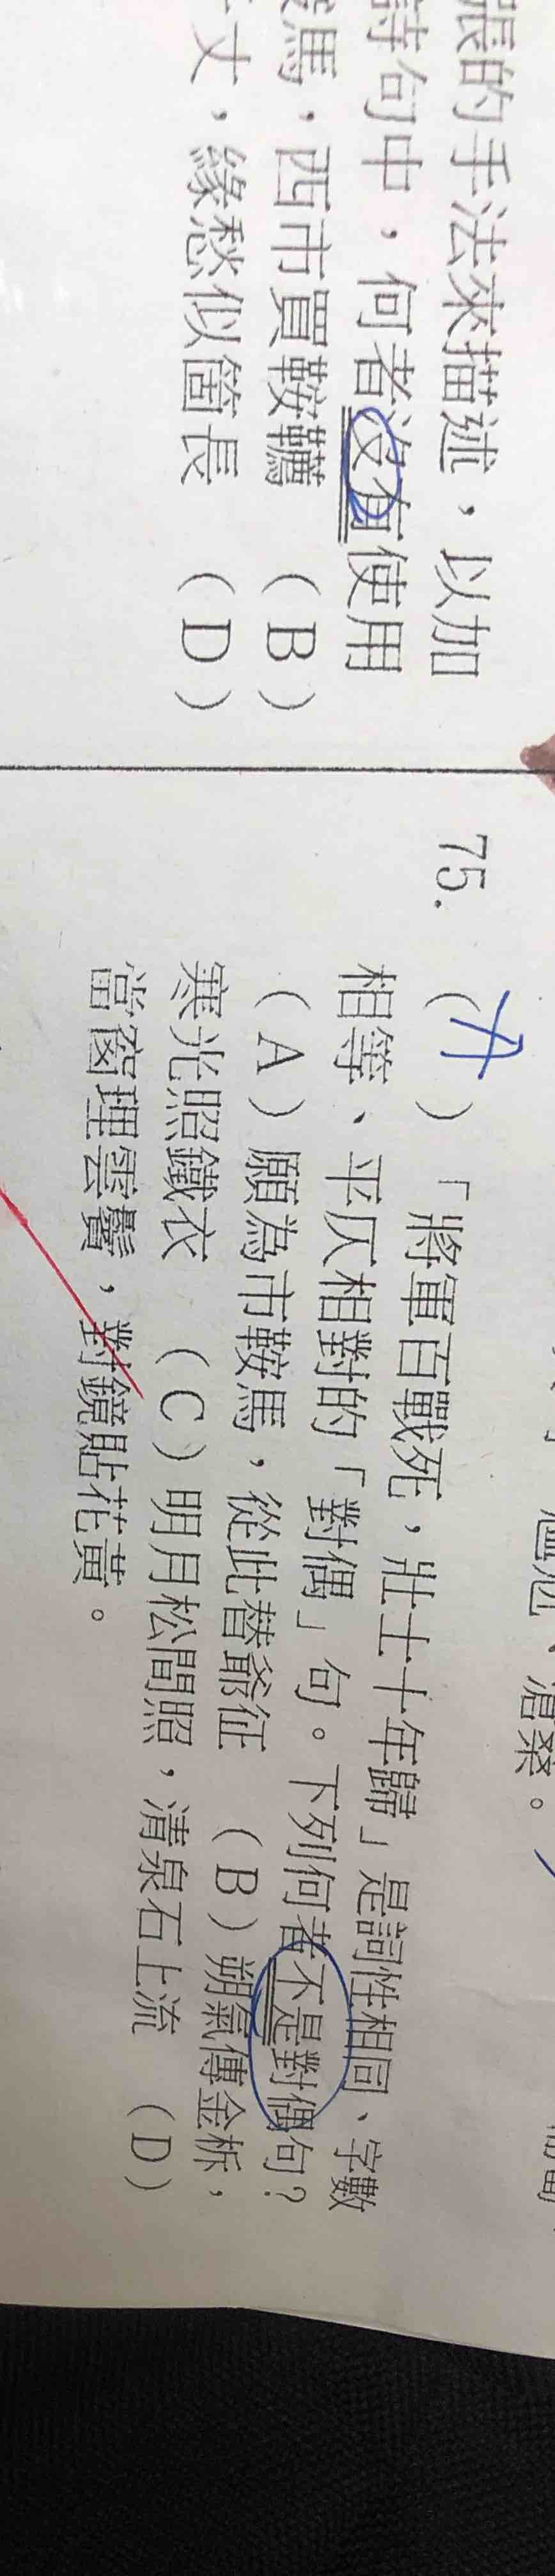 張的手法來描述，以加
詩句中，何者沒有使用
馬，西市買鞍韉　（B）
丈，緣愁似箇長　（D）
滄桑。
75.（A）「將軍百戰死，壯士十年歸」是詞性相同、字數
相等、平仄相對的「對偶」句。下列何者不是對偶句？
（A）願為市鞍馬，從此替爺征　（B）朔氣傳金柝，
寒光照鐵衣　（C）明月松間照，清泉石上流　（D）
當窗理雲鬢，對鏡貼花黃。